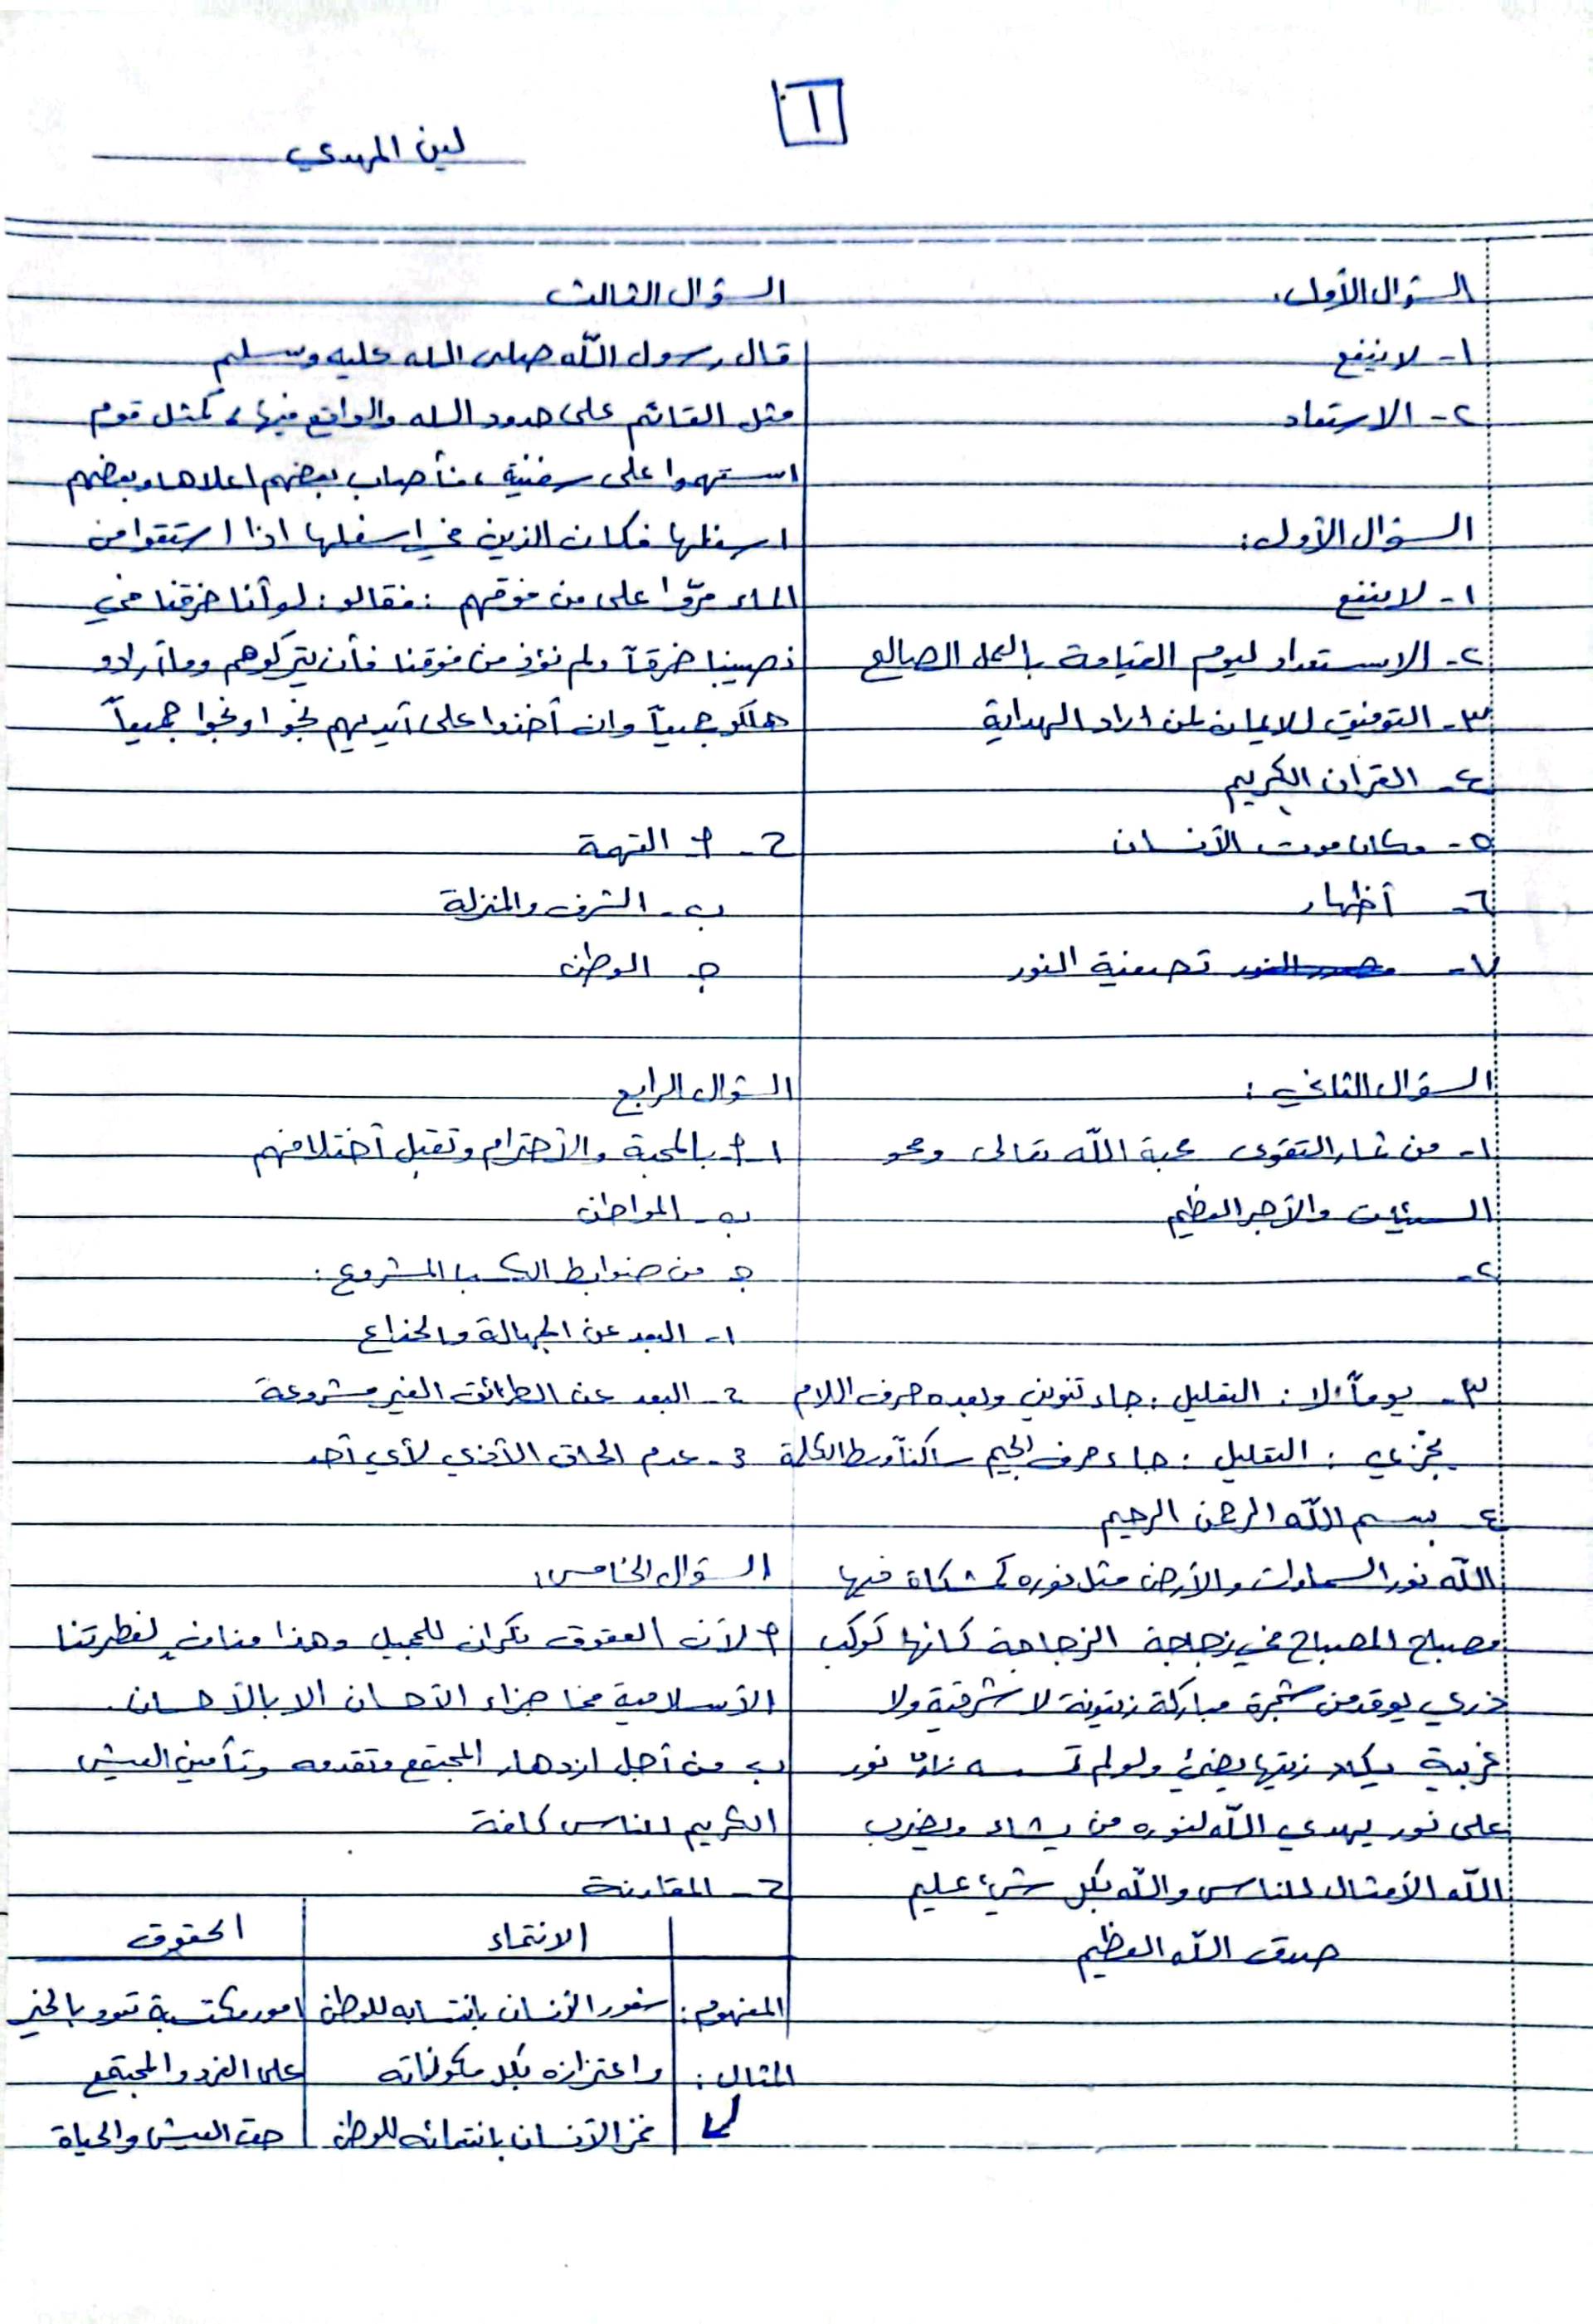 ١
لين المهدي
السؤال الأول:
١- لا ينفع
٢- الاستعاد
السؤال الأول:
١- لا ينفع
٢- الاستعداد ليوم القيامة بالعمل الصالح
٣- التوفيق للايمان لمن اراد الهداية
٤- القرآن الكريم
٥- مكان موت الأنسان
٦- أظهار
٧- تصفية النور
السؤال الثاني:
١- من ثمار التقوى محبة الله تعالى ومحو
السيئات والأجر العظيم
٢-
٣- يوماً لا: التعليل: جاء تنوين وبعده حرف اللام
يجزي: التعليل: جاء حرف الجيم ساكناً وسط الكلمة
٤- بسم الله الرحمن الرحيم
الله نور السماوات والأرض مثل نوره كمشكاة فيها
مصباح المصباح في زجاجة الزجاجة كانها كوكب
دري يوقد من شجرة مباركة زيتونة لا شرقية ولا
غربية يكاد زيتها يضيئ ولو لم تمسسه نارٌ نور
على نور يهدي الله لنوره من يشاء ويضرب
الله الأمثال للناس والله بكل شيء عليم
صدق الله العظيم
السؤال الثالث
قال رسول الله صلى الله عليه وسلم
مثل القائم على حدود الله والواقع فيها، كمثل قوم
استهموا على سفينة، فأصاب بعضهم اعلاها وبعضهم
اسفلها فكان الذين في اسفلها اذا استقوا من
الماء مرّوا على من فوقهم: فقالو: لو أنا خرقنا في
نصيبنا خرقاً ولم نؤذ من فوقنا فأن يتركوهم وما أرادو
هلكو جميعاً وان أخذوا على أيديهم نجو اونجوا جميعاً
2- أ- التهمة
ب- الشرف والمنزلة
ج- الوطن
السؤال الرابع
١- أ- بالمحبة والأحترام وتقبل أختلافهم
ب- المواطن
ج- من ضوابط الكسب المشروع:
١- البعد عن الجهالة والخداع
2- البعد عن الطرائق الغير مشروعة
3- عدم الحاق الأذى لأي أحد
السؤال الخامس:
أ- لأن العقوق نكران للجميل وهذا منافٍ لفطرتنا
الأسلامية فما جزاء الأحسان الا بالأحسان.
ب- من أجل ازدهار المجتمع وتقدمه وتأمين العيش
الكريم للناس كافة
2- المقارنة
الانتماء الحقوق
المفهوم: شعور الأنسان بانتسابه للوطن امور مكتسبة تعود بالخير
واعتزازه بكل مكوناته على الفرد والمجتمع
المثال: فخر الأنسان بانتمائه للوطن حق العيش والحياة